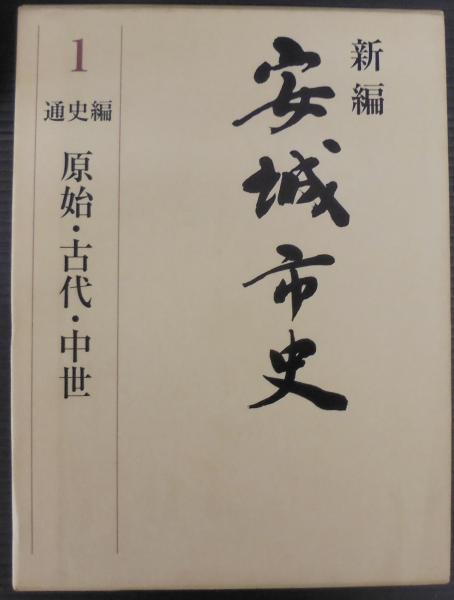 新編
安城市史
1
通史編
原始・古代・中世